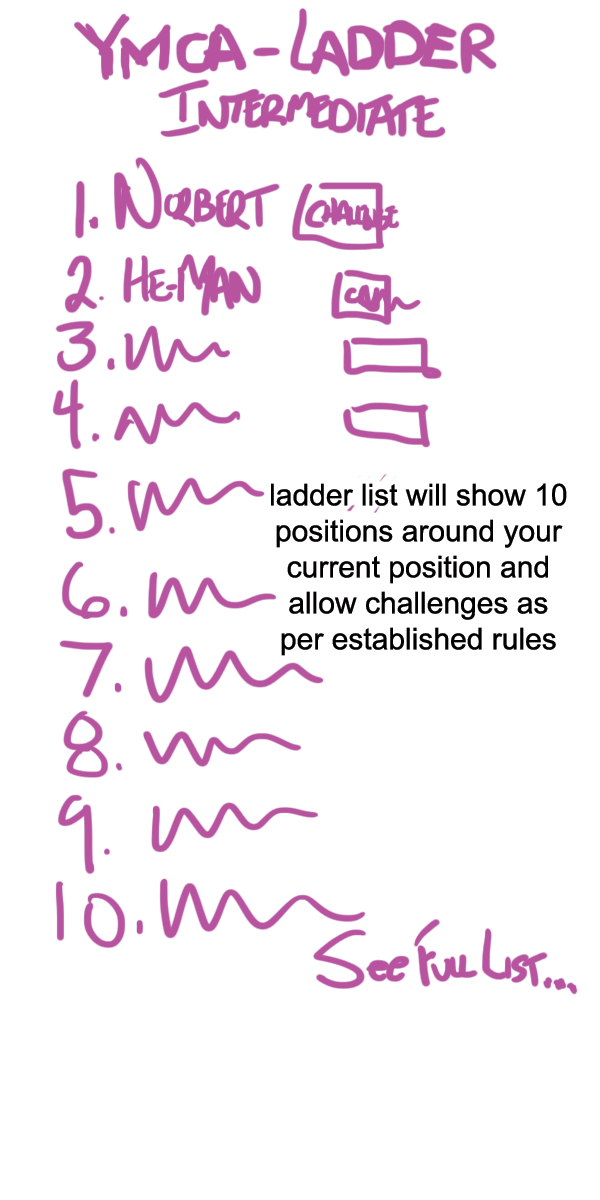 YMCA-LADDER
INTERMEDIATE
1. NORBERT
2. HE-MAN
3.
4.
5.
ladder list will show 10
positions around your
current position and
6.
allow challenges as
per established rules
7.
8.
9.
10.
SEE FULL LIST...